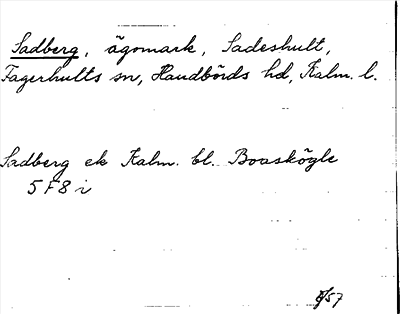 Sadberg, ägomark, Sadeshult,
Fagerhults sn, Handbörds hd, Kalm. l.
Sadberg ek Kalm. bl. Boaskögle
5 F 8 i
/57